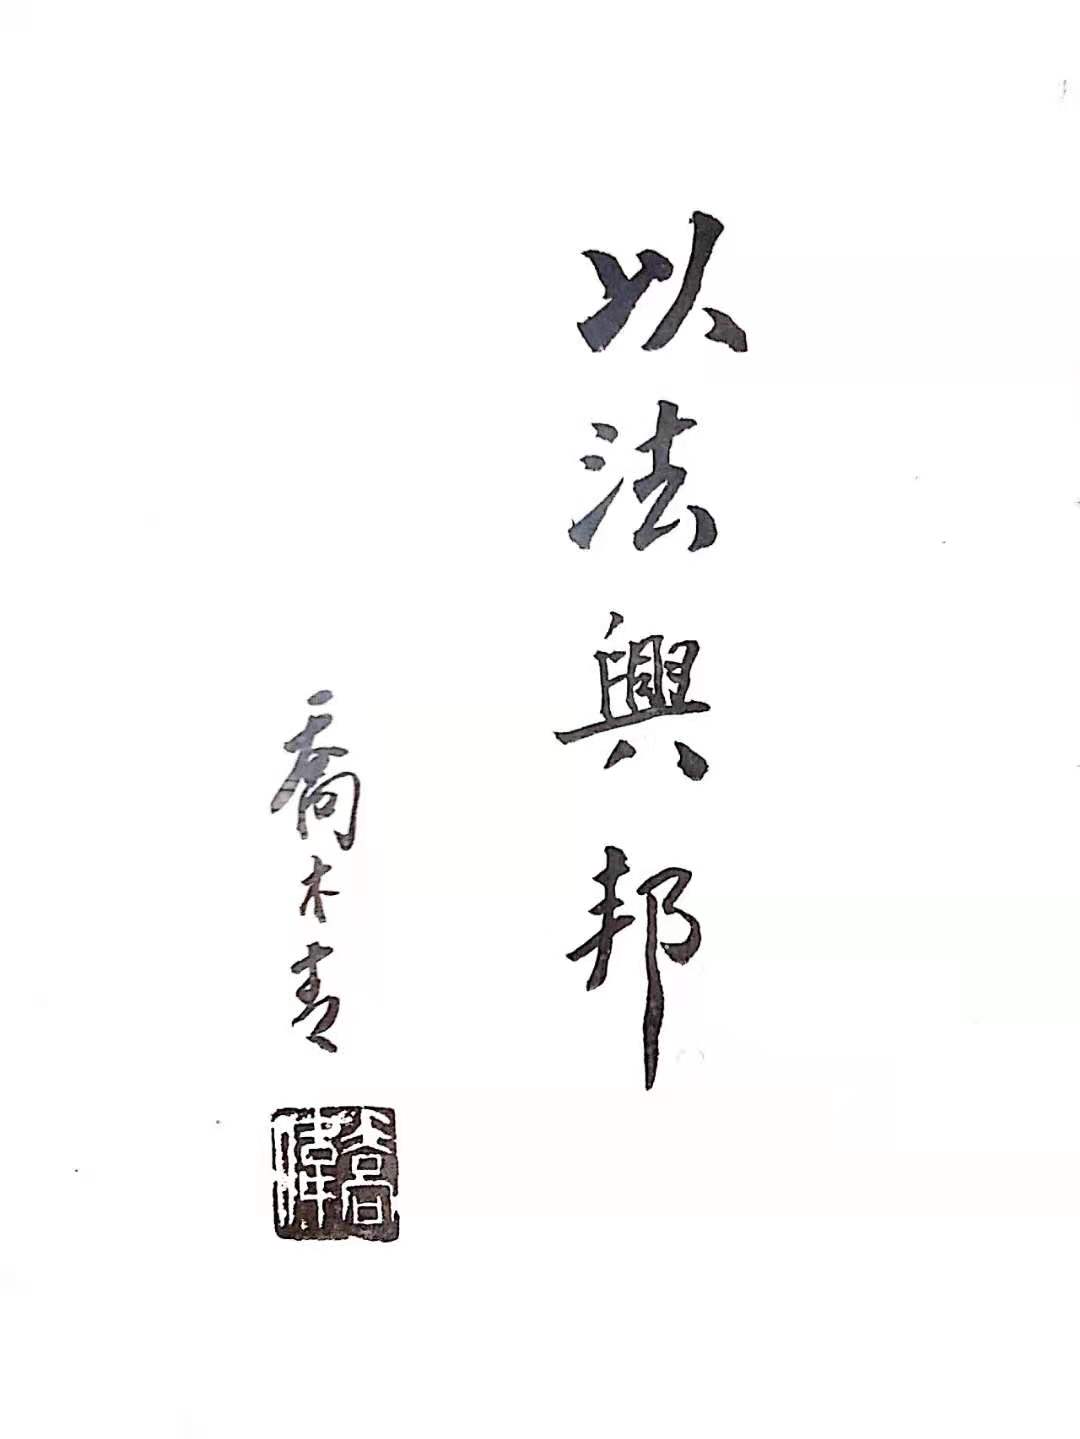 以法興邦
喬木青
喬偉